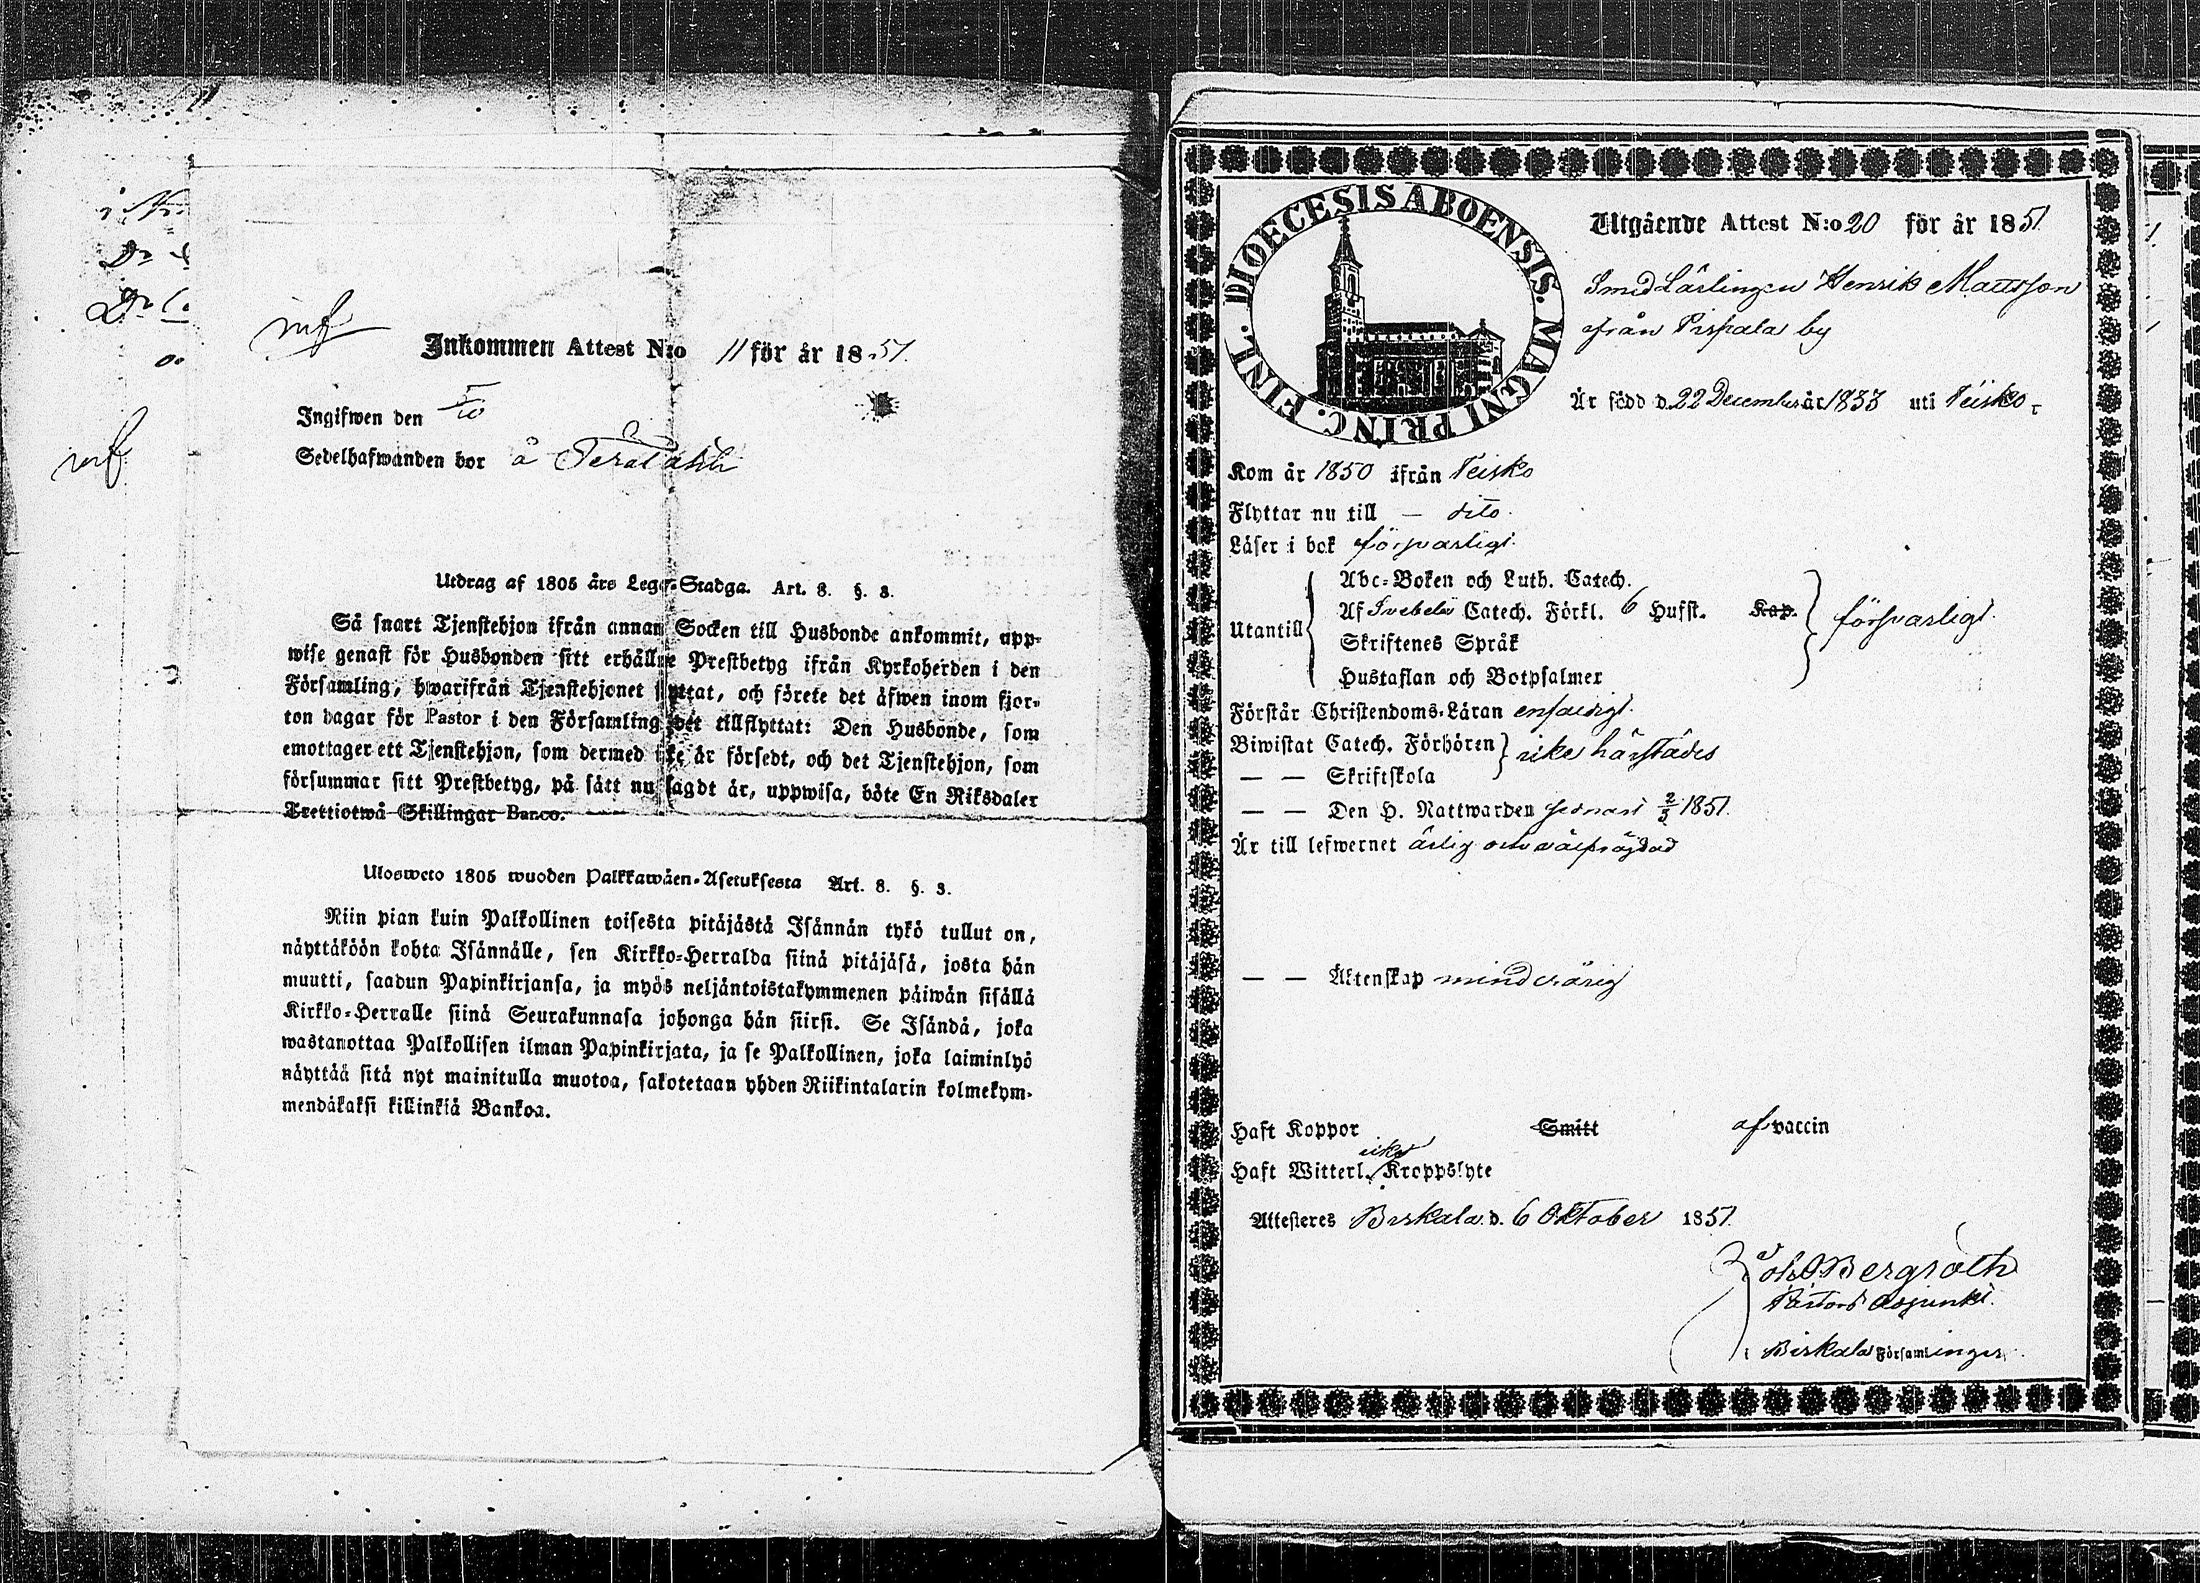 mf
mf
Inkommen Attest N:o 11 för år 1851.
Ingifwen den 5/10
Sedelhafwanden bor å
Utdrag af 1805 års Lego-Stadga. Art. 8. §. 3.
Så snart Tjenstehjon ifrån annan Socken till Husbonde ankommit, upp-
wise genast för Husbonden sitt erhållne Prestbetyg ifrån Kyrkoherden i den
Församling, hwarifrån Tjenstehjonet flyttat, och förete det äfwen inom fjor-
ton dagar för Pastor i den Församling det tillflyttat: Den Husbonde, som
emottager ett Tjenstehjon, som dermed icke är försedt, och det Tjenstehjon, som
försummar sitt Prestbetyg, på sätt nu sagdt är, uppwisa, böte En Riksdaler
Trettiotwå Skillingar Banco.
Ulosweto 1805 wuoden Palkkawäen-Asetuksesta Art. 8. §. 3.
Niin pian kuin Palkollinen toisesta pitäjästä Isännän tykö tullut on,
näyttäköön kohta Isännälle, sen Kirkko-Herralda siinä pitäjäsä, josta hän
muutti, saadun Papinkirjansa, ja myös neljäntoistakymmenen päiwän sisällä
Kirkko-Herralle siinä Seurakunnasa johonga hän siirsi. Se Isändä, joka
wastanottaa Palkollisen ilman Papinkirjata, ja se Palkollinen, joka laiminlyö
näyttää sitä nyt mainitulla muotoa, sakotetaan yhden Riikintalarin kolmekym-
mendäkaksi killinkiä Bankoa.
DIOECESIS ABOENSIS. MAGNI PRINC. FINL.
Utgående Attest N:o 20 för år 1851
SmedLärlingen Henrik Mattsson
från Pispala by
Är född d. 22 December år 1833 uti Teisko.
Kom år 1850 ifrån Teisko
Flyttar nu till — dito.
Läser i bok försvarligt.
Abc-Boken och Luth. Catech.
Utantill Af Svebelii Catech. Förkl. 6 Hufst. Kap. försvarligt.
Skriftenes Språk
Hustaflan och Botpsalmer
Förstår Christendoms-Läran enfaldigt.
Biwistat Catech. Förhören icke härstädes
— — Skriftskola
— — Den H. Nattwarden senast 2/3 1851.
Är till lefwernet ärlig och välfrägdad
— — Äktenskap minderårig
Haft Koppor Smitt af vaccin
Haft Witterl. icke Kroppslyte
Attesteres Birkala d. 6 Oktober 1851.
Joh Bergroth
Pastors Adjunkt.
i Birkala Församlingen.